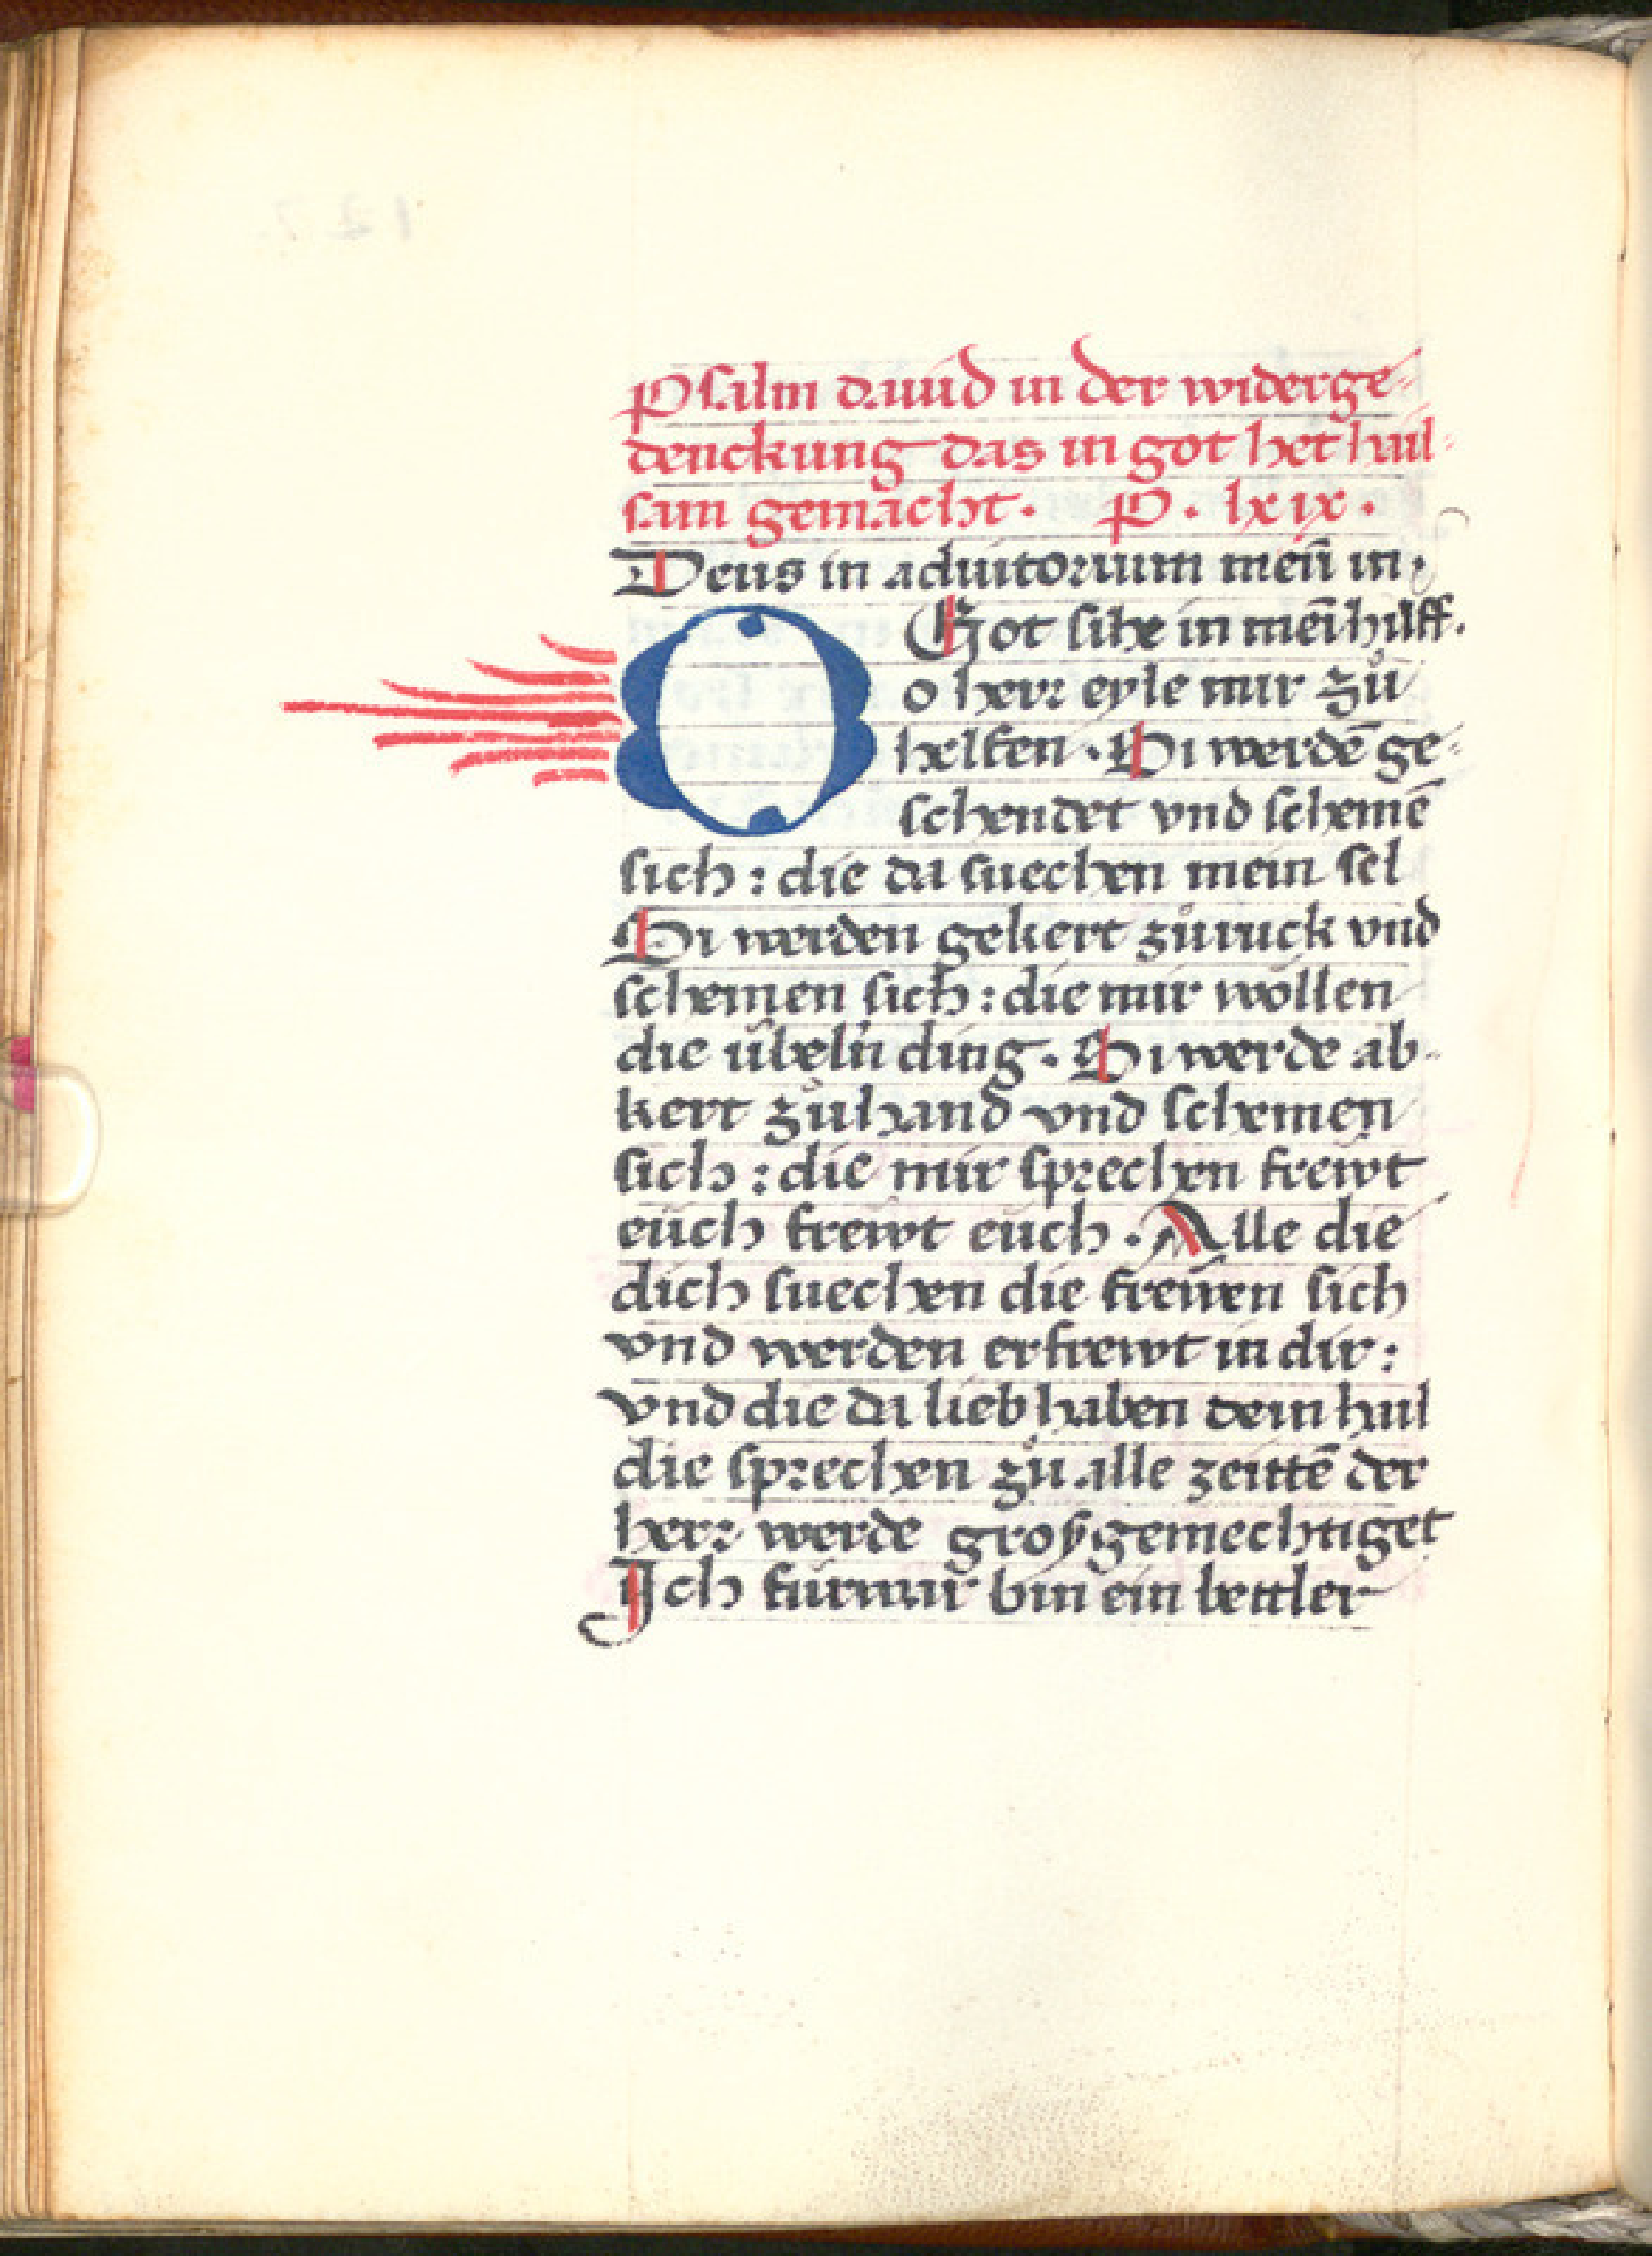 Psalm dauid in der widerge-
denckung das in got het hail-
sam gemacht. P. lxix.
Deus in adiutorium meū in.
O Got sihe in mei hilff.
o herr eyle mir zů
helfen. Si werdē ge-
schendet vnd schemē
sich : die da suechen mein sel
Si werden gekert zůruck vnd
schemen sich : die mir wöllen
die übeln ding. Si werde ab-
kert zůhand vnd schemen
sich : die mir sprechen frewt
eüch frewt euch. Alle die
dich suechen die freüen sich
vnd werden erfrewt in dir :
vnd die da lieb haben dein hail
die sprechen zů alle zeittē der
herr werde groß gemechtiget
Ich fürwar bin ein bettler